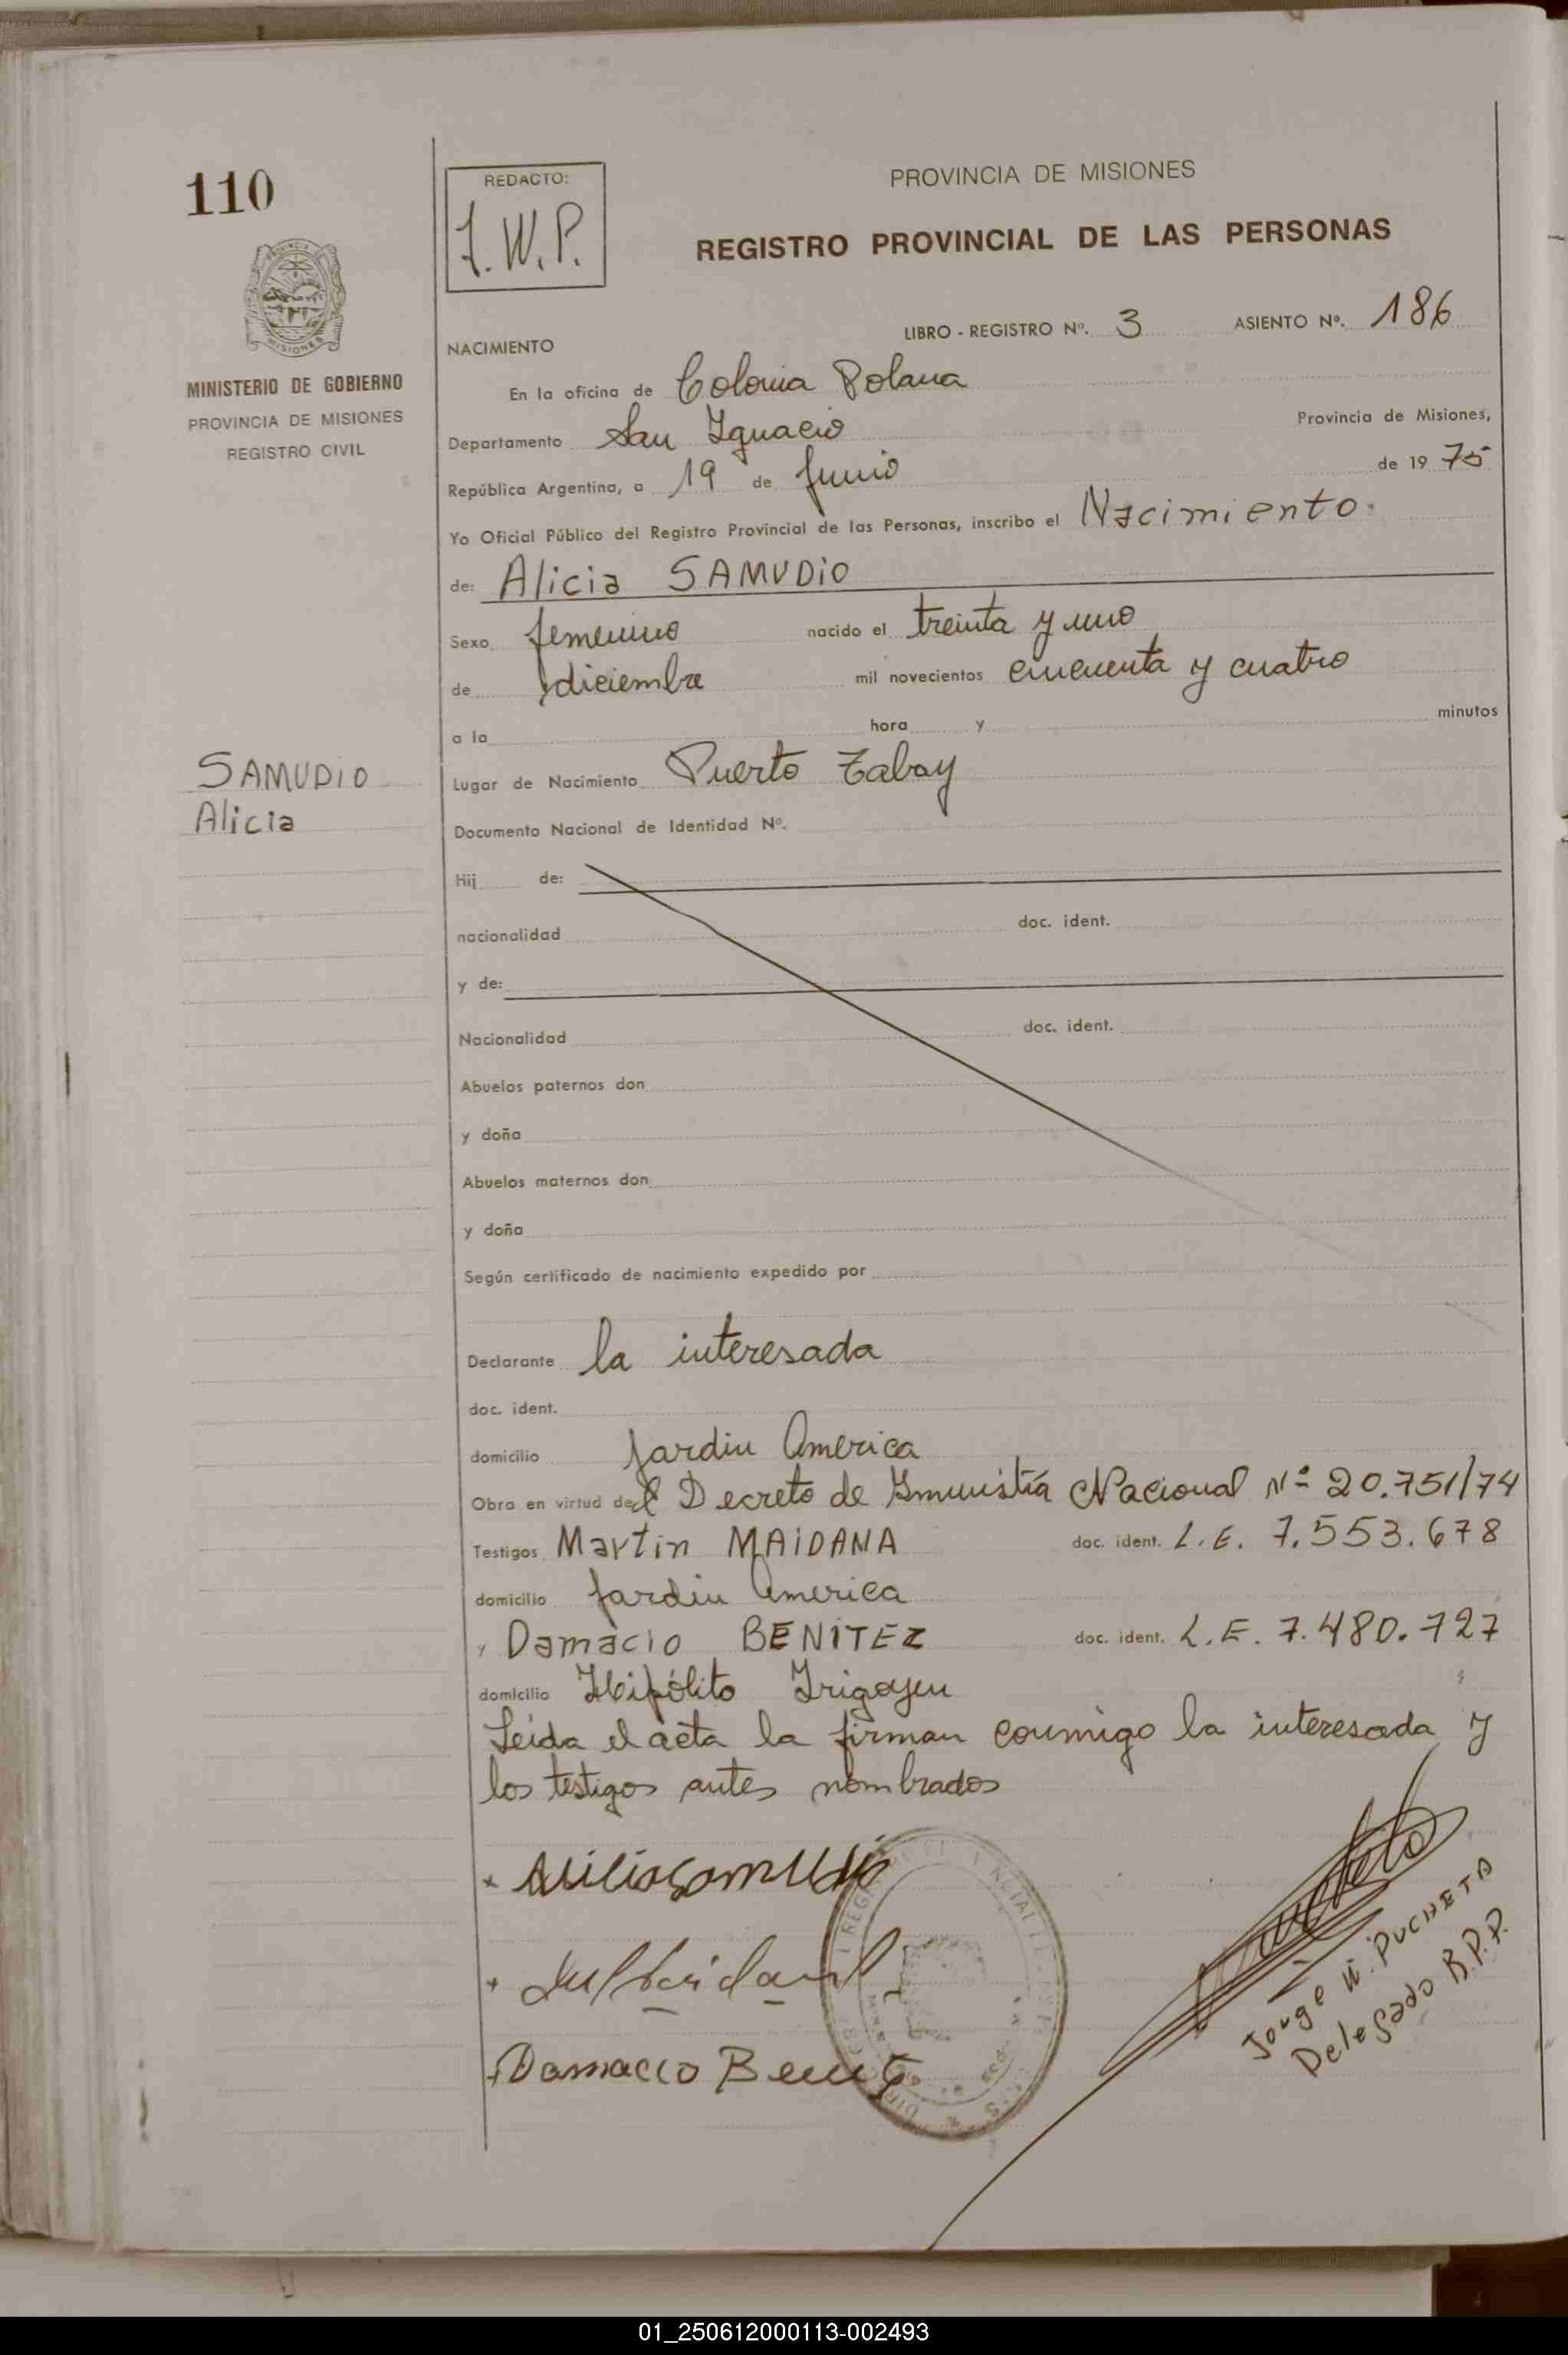 110
REDACTO:
J.W.P.
PROVINCIA DE MISIONES
REGISTRO PROVINCIAL DE LAS PERSONAS
MISIONES
MINISTERIO DE GOBIERNO
PROVINCIA DE MISIONES
REGISTRO CIVIL
LIBRO - REGISTRO Nº. 3 ASIENTO Nº. 186
NACIMIENTO
En la oficina de Colonia Polana
Departamento San Ignacio Provincia de Misiones,
República Argentina, a 19 de Junio de 19 75
Yo Oficial Público del Registro Provincial de las Personas, inscribo el Nacimiento.
de: Alicia SAMUDIO
Sexo femenino nacido el treinta y uno
de diciembre mil novecientos cincuenta y cuatro
a la hora y minutos
SAMUDIO
Alicia
Lugar de Nacimiento Puerto Tabay
Documento Nacional de Identidad Nº.
Hij de:
nacionalidad doc. ident.
y de:
Nacionalidad doc. ident.
Abuelos paternos don
y doña
Abuelos maternos don
y doña
Según certificado de nacimiento expedido por
Declarante la interesada
doc. ident.
domicilio Jardin America
Obra en virtud del Decreto de Nacional Nº 20.751/74
Testigos Martin MAIDANA doc. ident. L.E. 7.553.678
domicilio Jardin America
y Damacio BENITEZ doc. ident. L.E. 7.480.727
domicilio Hipólito Irigoyen
Leida el acta la firman conmigo la interesada y
los testigos antes nombrados
Damacio Benitez
Jorge W. PUCHETA
Delegado R.P.P.
01_250612000113-002493